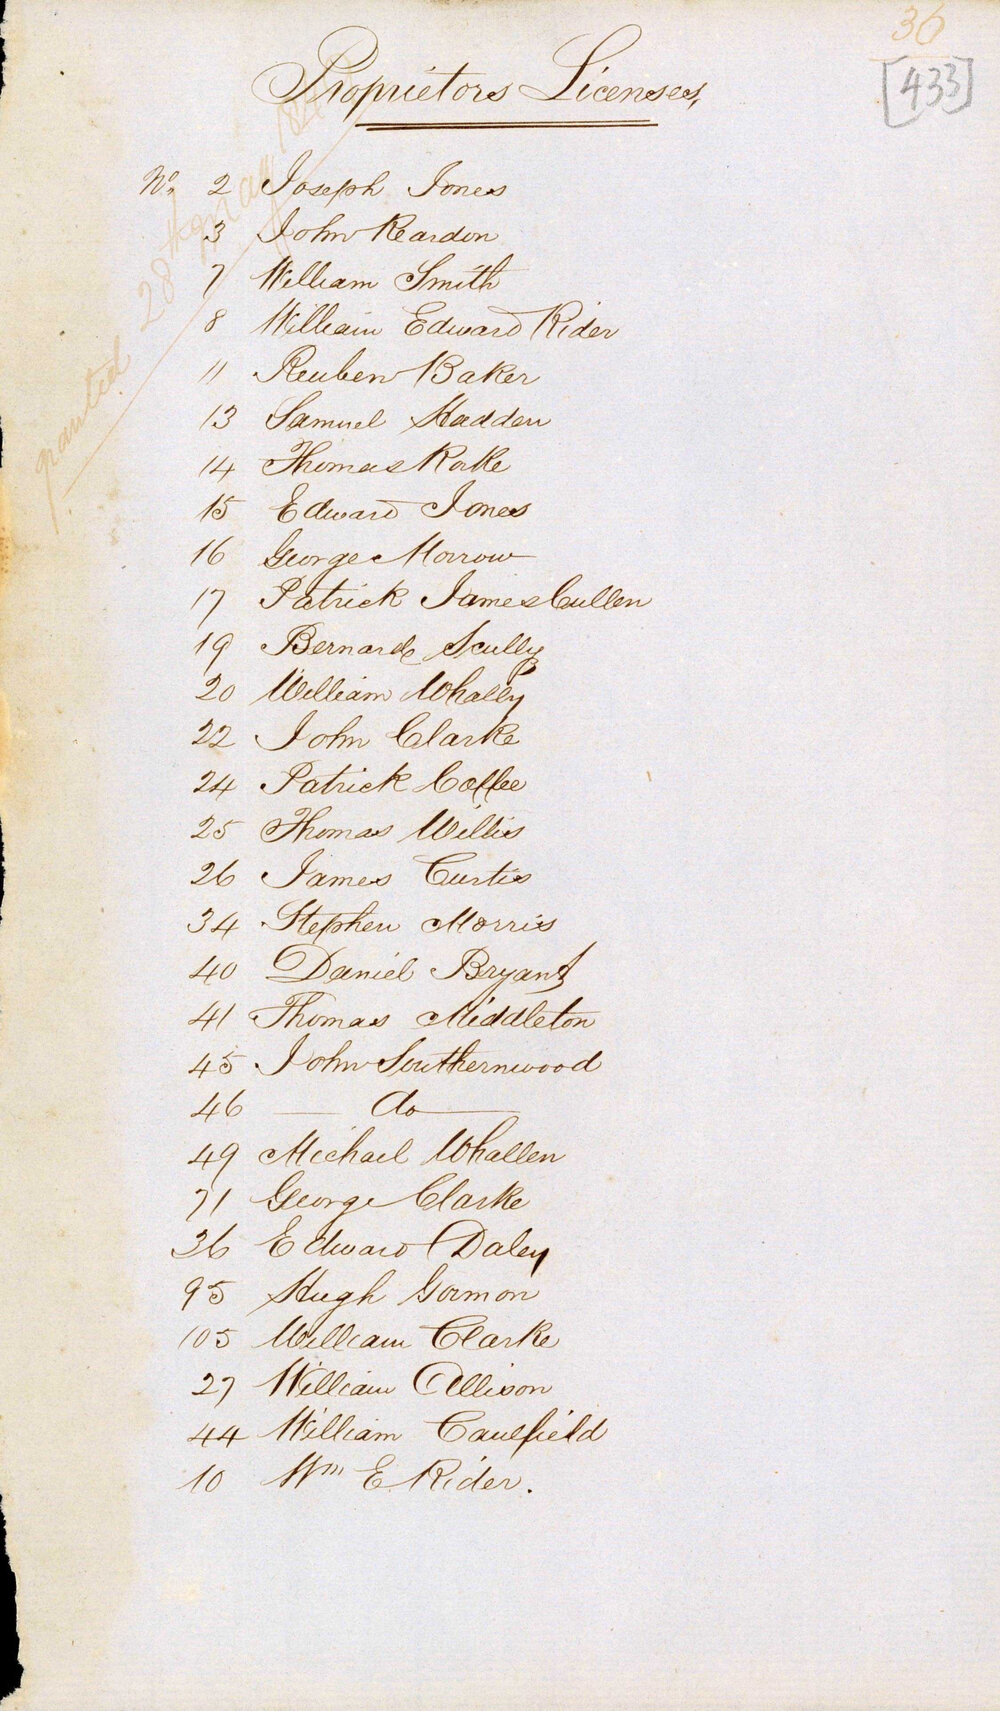 36
[433]
Proprietors Licenses,
No. 2 Joseph Jones
3 John Reardon
7 William Smith
8 William Edward Rider
11 Reuben Baker
13 Samuel Hadden
14 Thomas Rorke
15 Edward Jones
16 George Morrow
17 Patrick James Cullen
19 Bernard Scully
20 William Whally
22 John Clarke
24 Patrick Coffee
25 Thomas Willis
26 James Curtis
34 Stephen Morris
40 Daniel Bryant
41 Thomas Middleton
45 John Southernwood
46 — do —
49 Michael Whallen
71 George Clarke
36 Edward Daley
95 Hugh Gormon
105 William Clarke
27 William Allison
44 William Caulfield
10 Wm E Rider.
granted 28